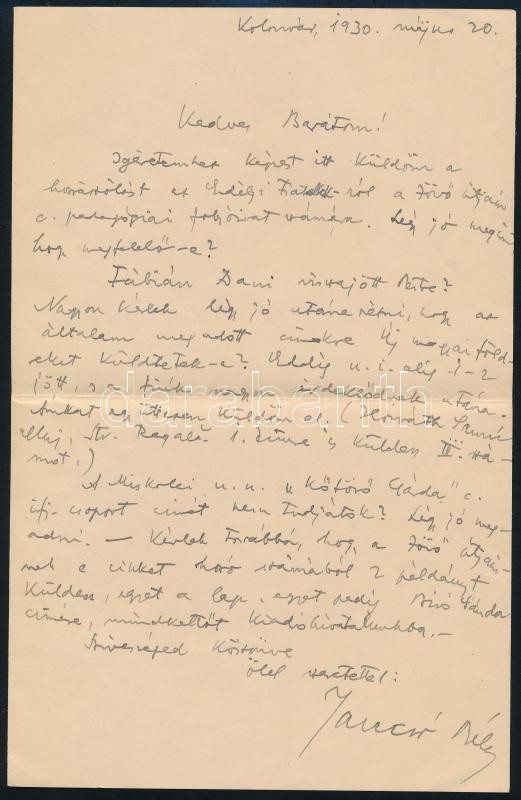 Kolozsvár, 1930. május 20.
Kedves Barátom!
Igéretemhez képest itt küldöm a
hozzászólást az Erdélyi Fiatalok-ról a Jövő útjain
c. pedagógiai folyóirat számára. Légy jó megírni
hogy megfelelő-e?
Fábián Dani visszajött Pestre?
Nagyon kérlek légy jó utána nézni, hogy az
általam megadott címekre Új magyar föld-
eket küldtetek-e? Eddig u. i. alig 1-2
jött, s a fiúk nagyon érdeklődnek utána.
itt sem küldöm el. (Horváth
Cluj, Str. Regală. 1. címre is küldess II. szá-
mot.)
A Miskolci u. n. "Kőtörő Gárda" c.
ifj. csoport címét nem tudjátok? Légy jó meg-
adni. — Kérlek továbbá, hogy a Jövő útjain-
nak e cikket hozó számából 2 példányt
küldess, egyet a lap, egyet pedig Bíró Sándor
címére, mindkettőt kiadóhivatalunkba.-
Szivességed köszönve
ölel szeretettel:
Jancsó Béla
darabanth